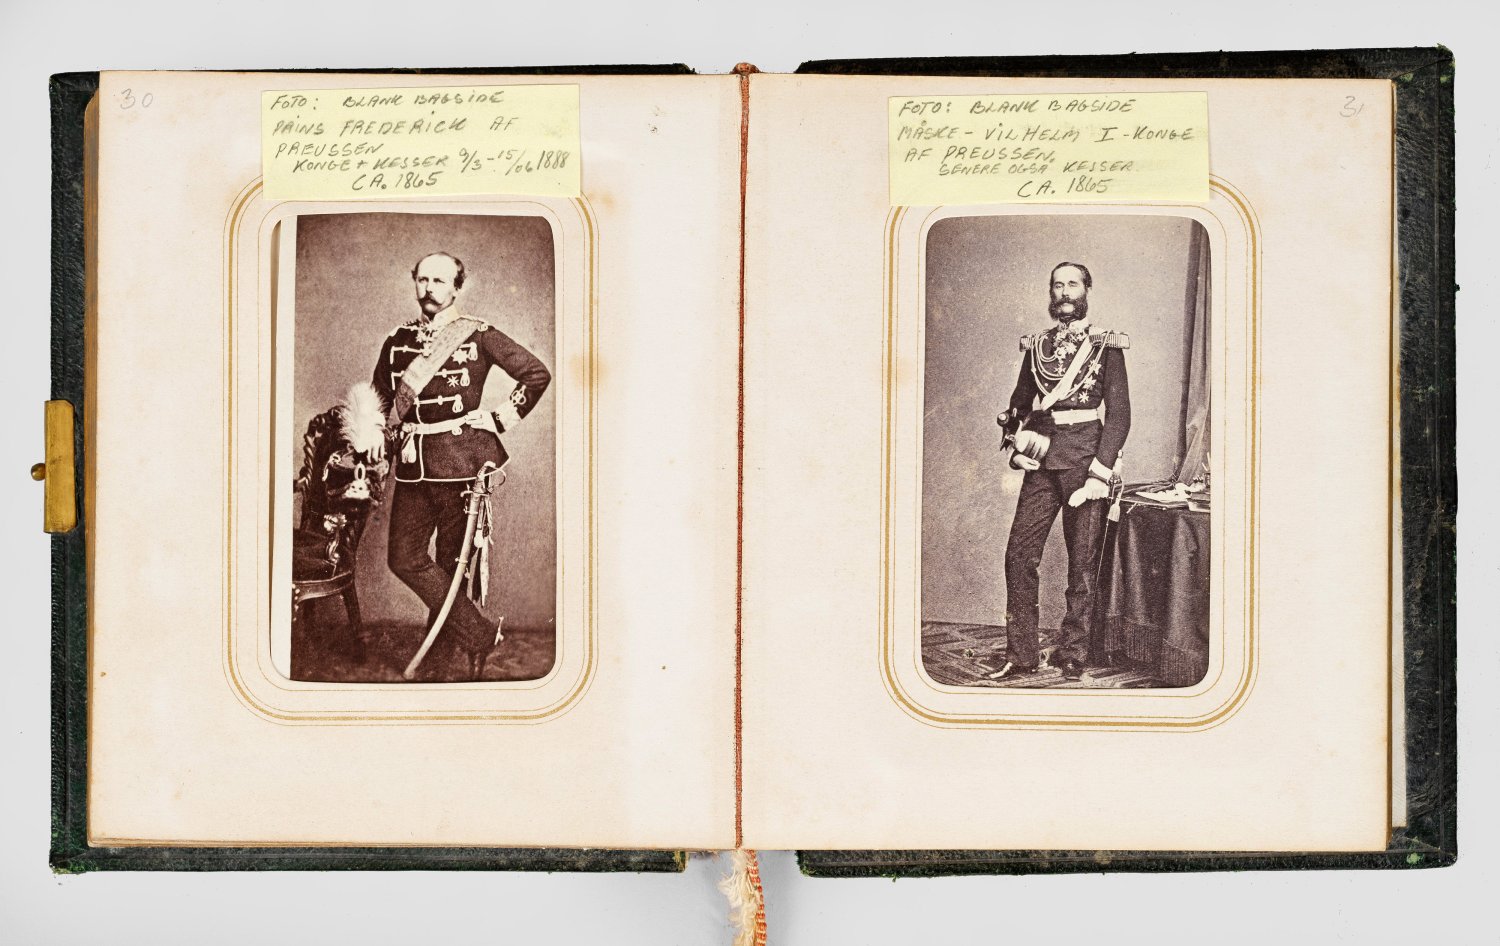 30
FOTO: BLANK BAGSIDE
PRINS FREDERICK AF
PREUSSEN
KONGE + KESSER 9/3-15/06 1888
CA. 1865
31
FOTO: BLANK BAGSIDE
MÅSKE - VILHELM I - KONGE
AF PREUSSEN.
SENERE OGSÅ KEJSER.
CA. 1865